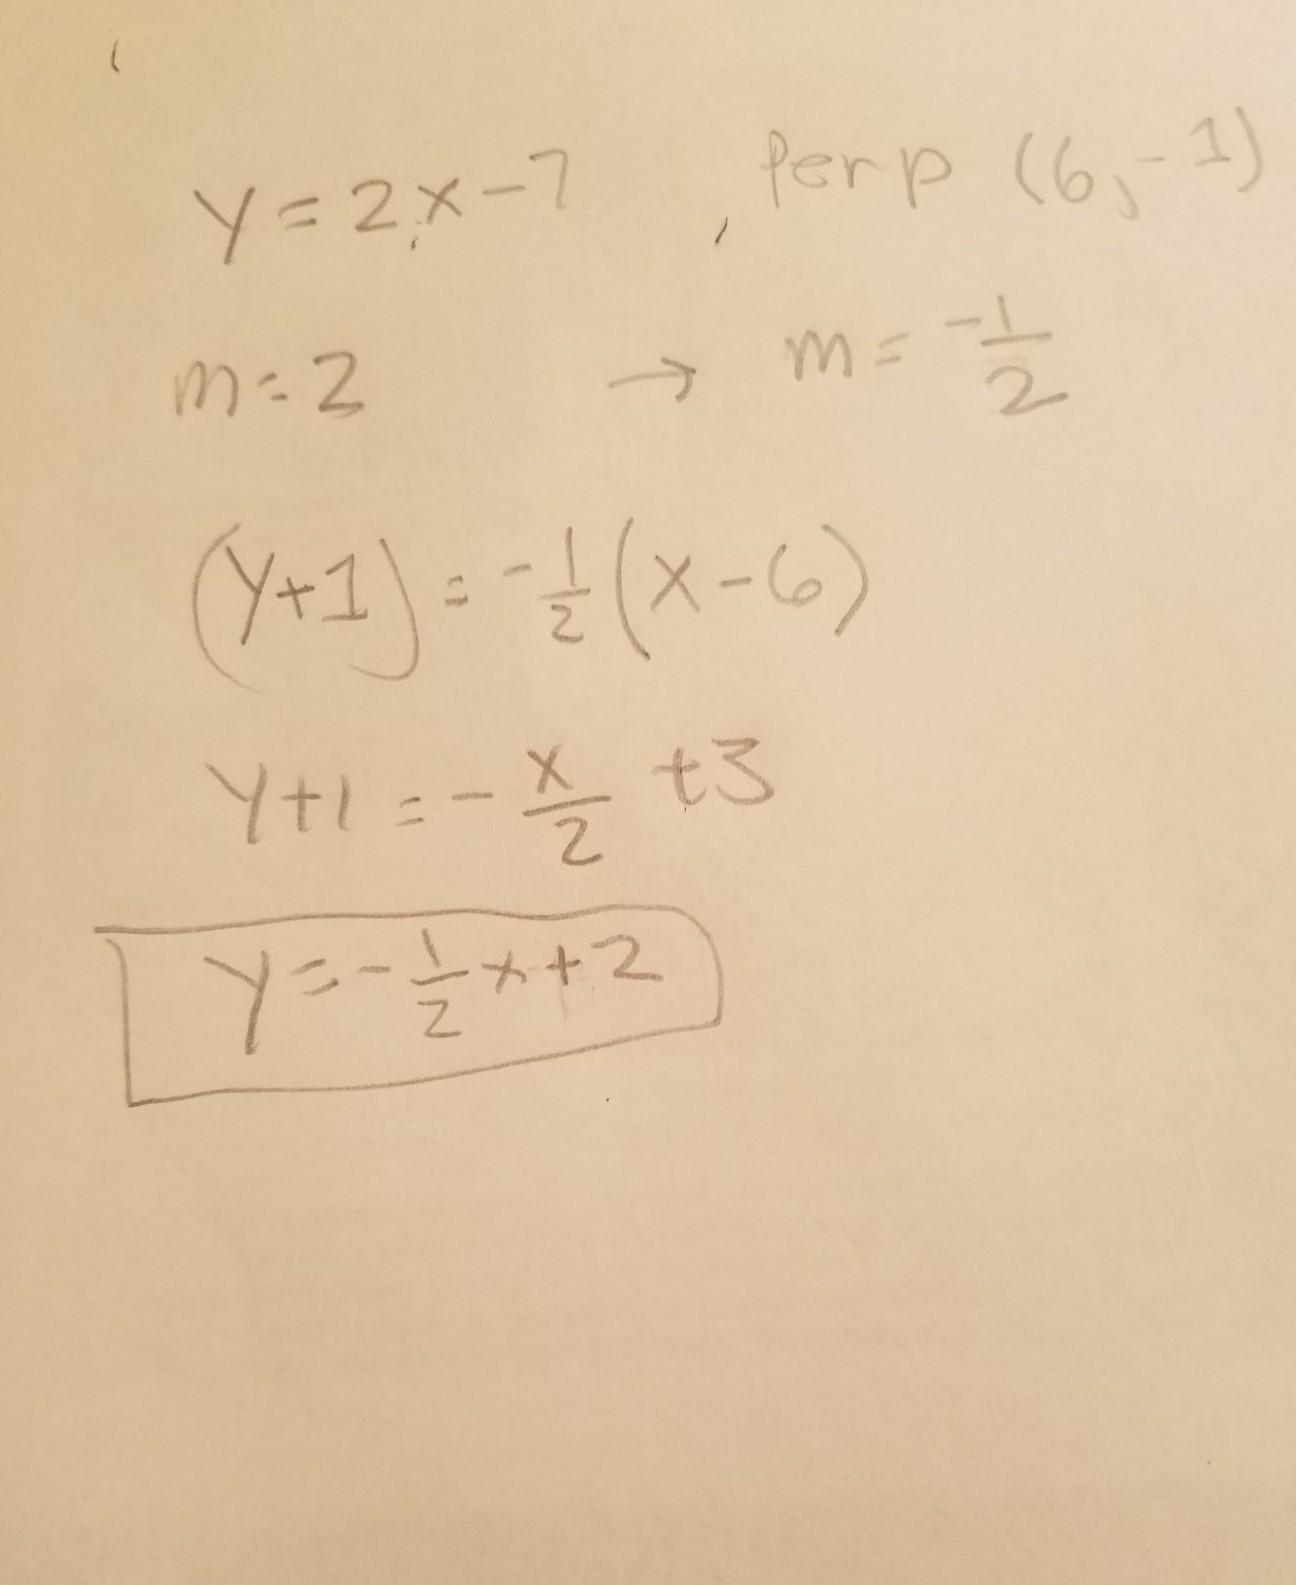 y = 2x - 7 , Perp (6, -1)
m = 2 → m = -1/2
(y+1) = -1/2 (x - 6)
y+1 = - x/2 + 3
y = - 1/2 x + 2